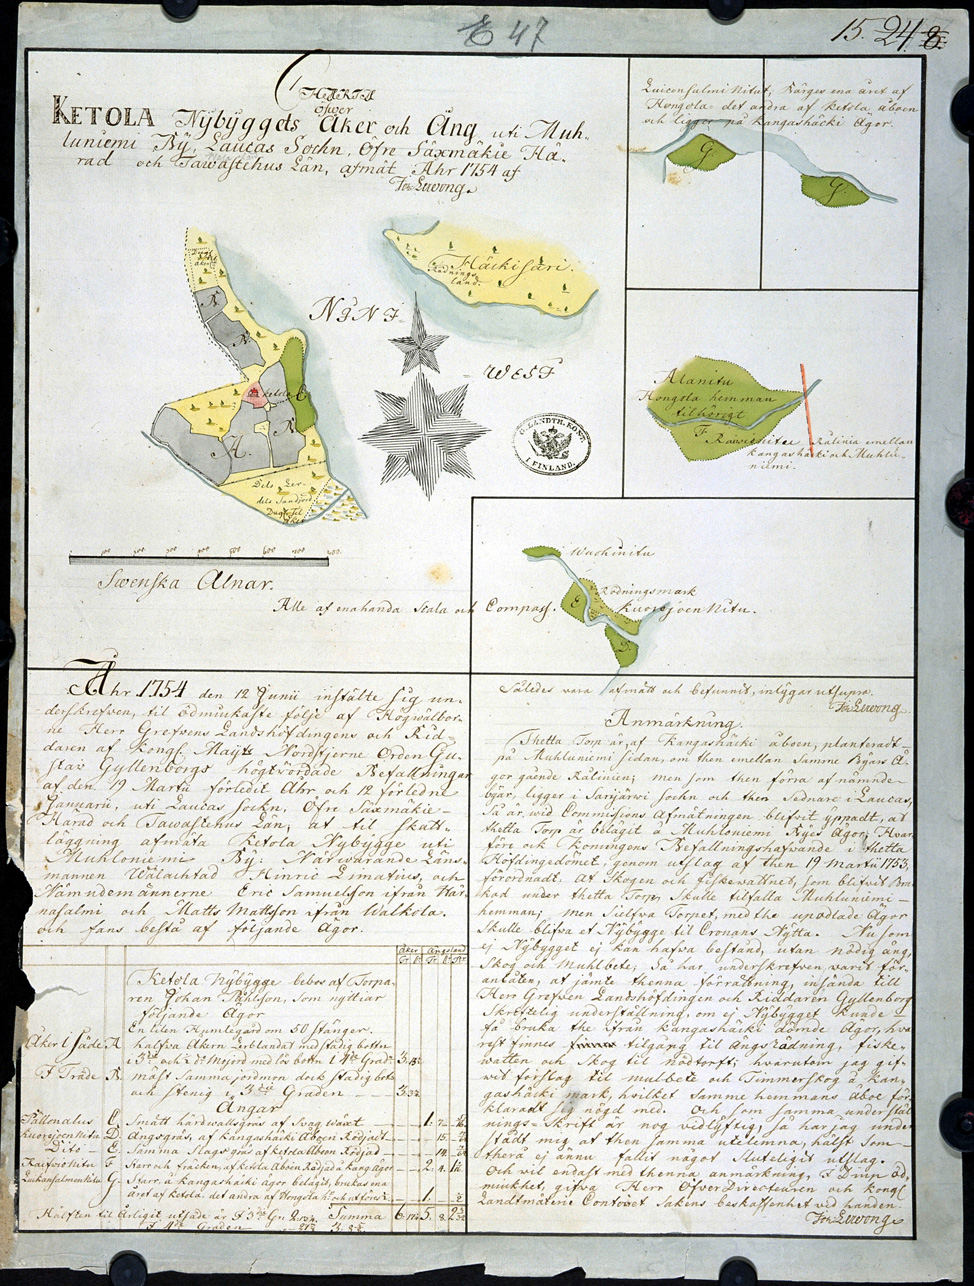 E 47
15. 24
CHARTA
öfwer
KETOLA Nybyggets Åker och Äng uti Muh-
luniemi By, Laucas Sochn, Öfre Säxmäkie Hä-
rad och Tawastehus Län, afmät Åhr 1754 af
Luicensalmi Nitut, Bärges ena året af
Hongola det andra af ketola åboen
och ligger på kangashäcki Ägor.
G.
G.
Häckisari.
Rödnings
land.
WEST
A.
ketola
C
B.
Dels Ler-
dels Sandjord
Dugl. Til
åker
G. LANDTM. KONT.
I FINLAND.
Alanitu
Hongola hemman
tilhörigt
F
Rålinia emellan
kangashäcki och Muhlu-
niemi.
Swenska Alnar.
Alle af enahanda Scala och Compass.
Wuohinitu
Rödningsmark
E
Kuorejoen Nitu.
D
Åhr 1754 den 12 Junii instälte sig un-
derskrefven, til ödmiukaste följe af Högwälbor-
ne Herr Grefvens Landshöfdingens och Rid-
daren af Kongl. Maijts Nordstjerne Orden Gu-
stav Gyllenborgs högtvördade Befallningar
af den 19 Martii förledit Åhr och 12 förledne
Januarii, uti Laucas sockn, Öfre Säxmäkie-
Härad och Tawastehus Län, at til skatt-
läggning afmäta Ketola Nybygge uti
Muhloniemi By: Närwarande Läns-
mannen Wälachtad Hinric Limatius, och
Nämndemännerne Eric Samuelsson ifrån Här-
nasalmi och Matts Mattsson ifrån Walkola.
och fans bestå af följande Ägor.
Åker Ängsland
Ketola Nybygge bebos af Torpa-
ren Johan Påhlson, som nyttiar
följande Ägor
En liten Humlegård om 50 stänger.
Åker i Säde A halfwa Åkern Lerblandat med stadig botten
i 3die och 2dra Mojord med lös botten i 4de Grad
I Träde B mäst samma jordmon dock stadig botn
och stenig i 3die Graden
Ängar
C Smått hårdwallsgräs af Svag wäxt
Kuorejoen Nitu D Ängsgräs, af kangashäcki Åboen Rödjadt
Dito E Samma Slags gräs af ketola Åboen Rödjad
F Starr och fräcken, af ketola Åboen Rödjad å kangas ägor
G. Starr å kangashäcki ägor belägit, brukas ena
året af ketola det andra af Hongola
Hälften til Årligit utsäde är i 3die Gr. Summa
i 4de Graden
Således vara afmätt och befunnit, intygar ut supra.
Anmärkning.
Thetta Torp är, af Kangashäcki åboen, planteradt
på Muhluniemi sidan, om then emellan Samme Byars Ä-
gor gående Rålinien; men som then förra af nämnde
byar, ligger i Sarijärwi Sochn och then Sednare i Laucas,
Så är wid Commissions Afmätningen blifvit yppadt, at
thetta Torp är belägit å Muhluniemi Byes Ägor, Hvar-
före och Konungens Befallningshafwande i thetta
Höfdingedömet, genom utslag af then 19 Martii 1753,
förordnadt, At Skogen och fiskewattnet, som blifvit Bru-
kad under thetta Torp, Skulle tilfalla Muhluniemi
hemman; men Sielfwa Torpet, med the upodlade Ägor
Skulle blifwa et Nybygge til Cronans Nytta. Nu som
ej Nybygget ej kan hafwa bestånd, utan nödig äng,
Skog och Muhlbete; Så har underskrefven warit för-
anlåten, at jämte thenna förrättning, insända till
Herr Grefven Landshöfdingen och Riddaren Gyllenborg
Skriftelig underställning, om ej Nybygget kunde
få bruka the ifrån kangashäcki dömde Ägor, hva-
rest finnes tilgång til Ängsrödning, fiske-
watten och Skog til nödtorft; hvarutom jag gif-
wit förslag til mulbete och Timmerskog å kan-
gashäcki mark, hvilket samme hemmans åboe för-
klaradt sig nögd med. Och som samma underställ-
nings-Skrift är nog vidlyftig, Så har jag under-
stådt mig at then samma utelemna, hälst som
thera ej ännu fallit något Sluteligit utslag.
Och vil endast med thenna anmärkning, i Diup öd-
miukhet, gifva Herr Öfver Directeuren och kongl
Landtmäterie Contoiret Sakens beskaffenhet vid handen.